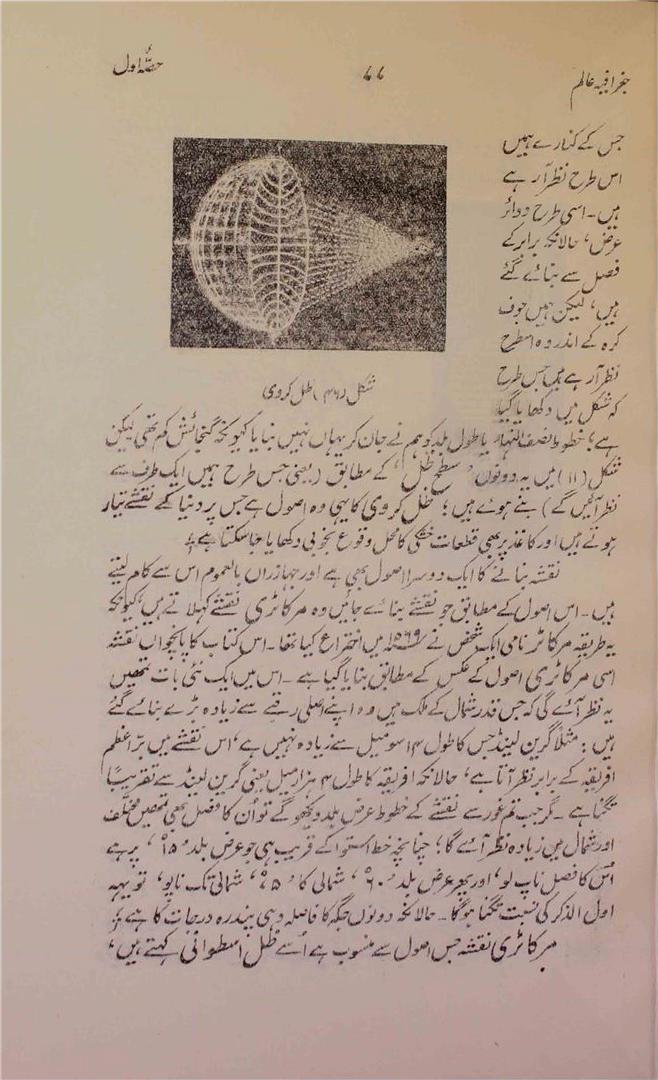 جغرافیہ عالم
۷۷
حصّہ اول
جس کے کنارے ہمیں
اس طرح نظر آ رہے
ہیں۔ اسی طرح دوائر
عرض، حالانکہ برابر کے
فصل سے بنائے گئے
ہیں، لیکن ہمیں جوف
کرہ کے اندر وہ اسطرح
نظر آ رہے ہیں جس طرح
کہ شکل میں دکھایا گیا
شکل (۴۶) ظل کروی
ہے؛ خطوط نصف النہار یا طول بلد کو ہم نے جان کر یہاں نہیں بنایا کیونکہ گنجائش کم تھی لیکن
شکل (۱۱) میں یہ دونوں "سطح ظل" کے مطابق (یعنی جس طرح ہمیں ایک طرف سے
نظر آئیں گے) بنے ہوے ہیں؛ ظل کروی کا یہی وہ اصول ہے جس پر دنیا کے نقشے تیار
ہوتے ہیں اور کاغذ پر بھی قطعات خشکی کا محل وقوع بخوبی دکھایا جا سکتا ہے؛
نقشہ بنانے کا ایک دوسرا اصول بھی ہے اور جہازراں بالعموم اس سے کام لیتے
ہیں۔ اس اصول کے مطابق جو نقشے بنائے جائیں وہ مرکاٹری نقشے کہلاتے ہیں، کیونکہ
یہ طریقہ مرکاٹر نامی ایک شخص نے ۱۵۶۹ میں اختراع کیا تھا۔ اس کتاب کا پانچواں نقشہ
اسی مرکاٹری اصول کے عکس کے مطابق بنایا گیا ہے۔ اس میں ایک نئی بات تمھیں
یہ نظر آئے گی کہ جس قدر شمال کے ملک ہیں وہ اپنے اصلی رقبے سے زیادہ بڑے بنائے گئے
ہیں: مثلاً گرین لینڈ جس کا طول ۱۴ سو میل سے زیادہ نہیں ہے، اس نقشے میں بڑ اعظم
افریقہ کے برابر نظر آتا ہے، حالانکہ افریقہ کا طول ۴ ہزار میل یعنی گرین لینڈ سے تقریباً
تگنا ہے۔ مگر جب تم غور سے نقشے کے خطوط عرض بلد دیکھو گے تو اُن کا فصل بھی تمھیں مختلف
اور شمال میں زیادہ نظر آے گا؛ چنانچہ خط استوا کے قریب ہی جو عرض بلد ۱۵°، پر ہے
اس کا فصل ناپ لو، اور پھر عرض بلد ۶۰°، شمالی کا ۷۵°، شمالی تک ناپو، تو یہہ
اول الذکر کی نسبت تگنا ہوگا۔ حالانکہ دونوں جگہ کا فاصلہ وہی پندرہ درجات کا ہے؛
مرکاٹری نقشہ جس اصول سے منسوب ہے اُسے ظل اسطوانی کہتے ہیں،